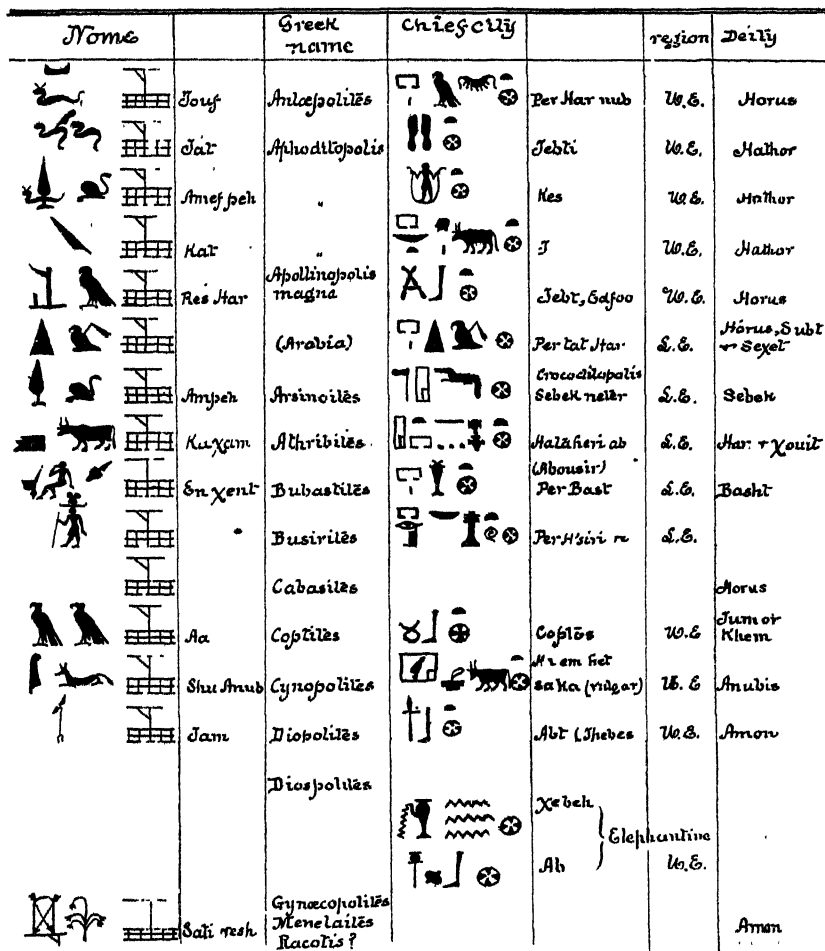 Nome Greek name Chief city region Deity
Touf Antæpolitēs Per Har nub U.E. Horus
Tat Aphoditopolis Tebti U.E. Hathor
Amef peh " Kes U.E. Hathor
Kat " T U.E. Hathor
Res Har Apollinopolis magna Tebt, Edfoo U.E. Horus
(Arabia) Per tat Har L.E. Horus, Subt + Sexet
Ampeh Arsinoitēs Crocodilopolis Sebek neter L.E. Sebek
Kuχam Athribitēs Hataheri ab L.E. Har. + χouit
En χent Bubastitēs (Abousir) Per Bast L.E. Basht
" Busiritēs Per H'siri n L.E.
Cabasitēs Horus
Aa Coptitēs Coptos U.E Tum or Khem
Shu Anub Cynopolitēs Ha em het saka (vulgar) U.E Anubis
Tam Diopolitēs Abt (Thebes U.E. Amon
Diospolitēs
Xebeh
Elephantine
Ab U.E.
Sati resh Gynæcopolitēs Menelaitēs Racotis? Amon